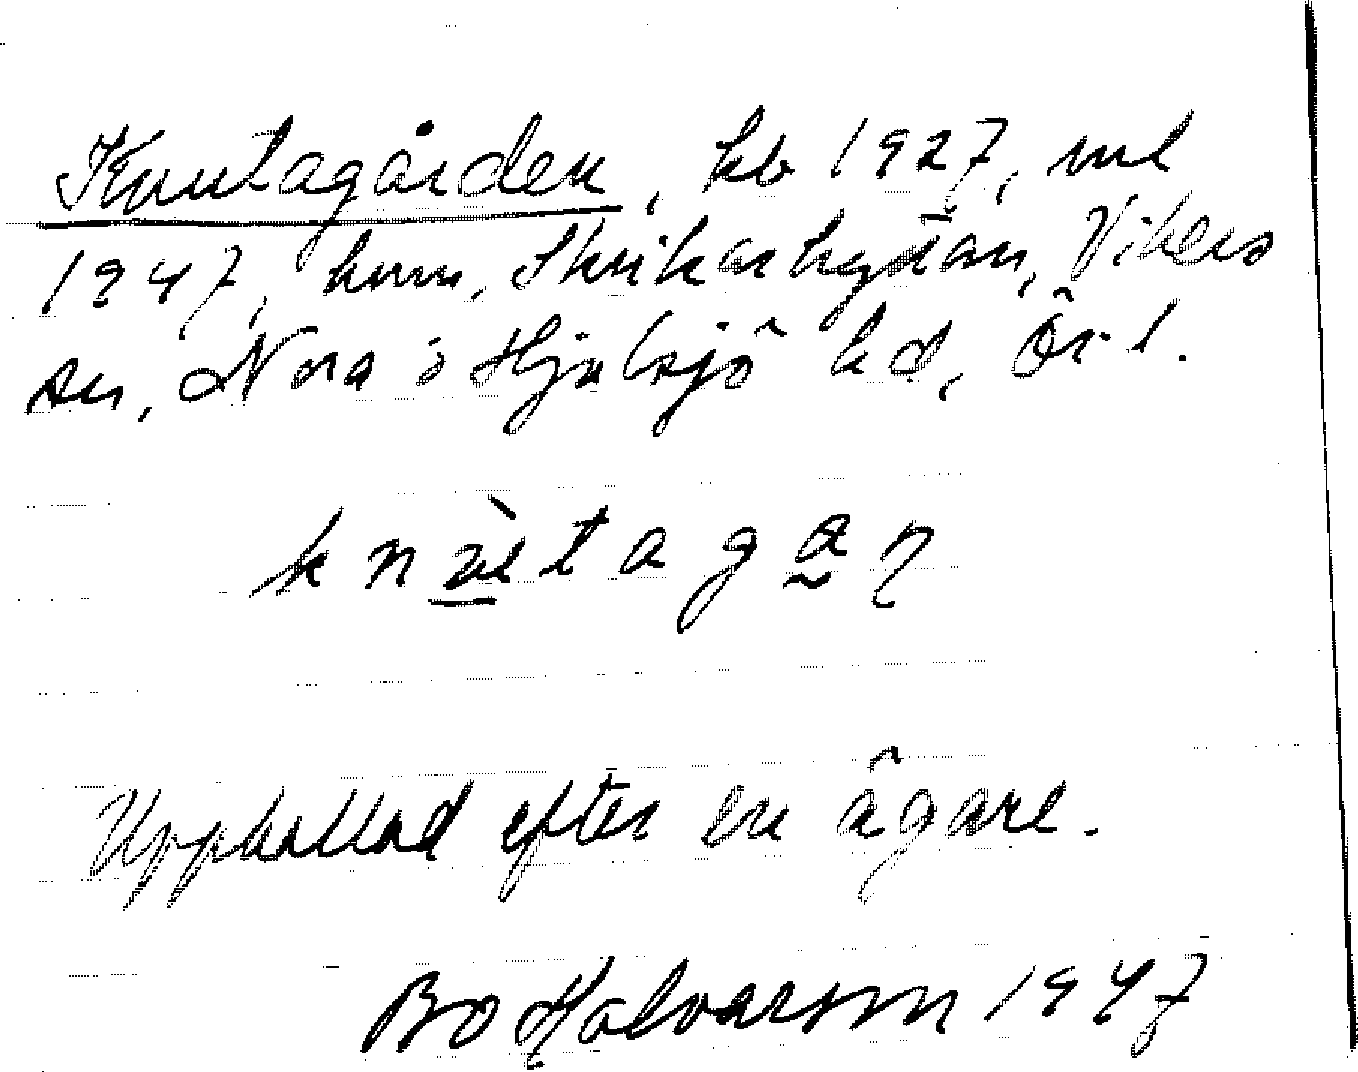 Knutagården, kb 1927, uul
1947, hmn. Skrikarhyttan, Vikers
sn, Nora o Hjulsjö hd, Ör. l.
k n ù t a g a n
Uppkallad efter en ägare.
Bo Halvarson 1947